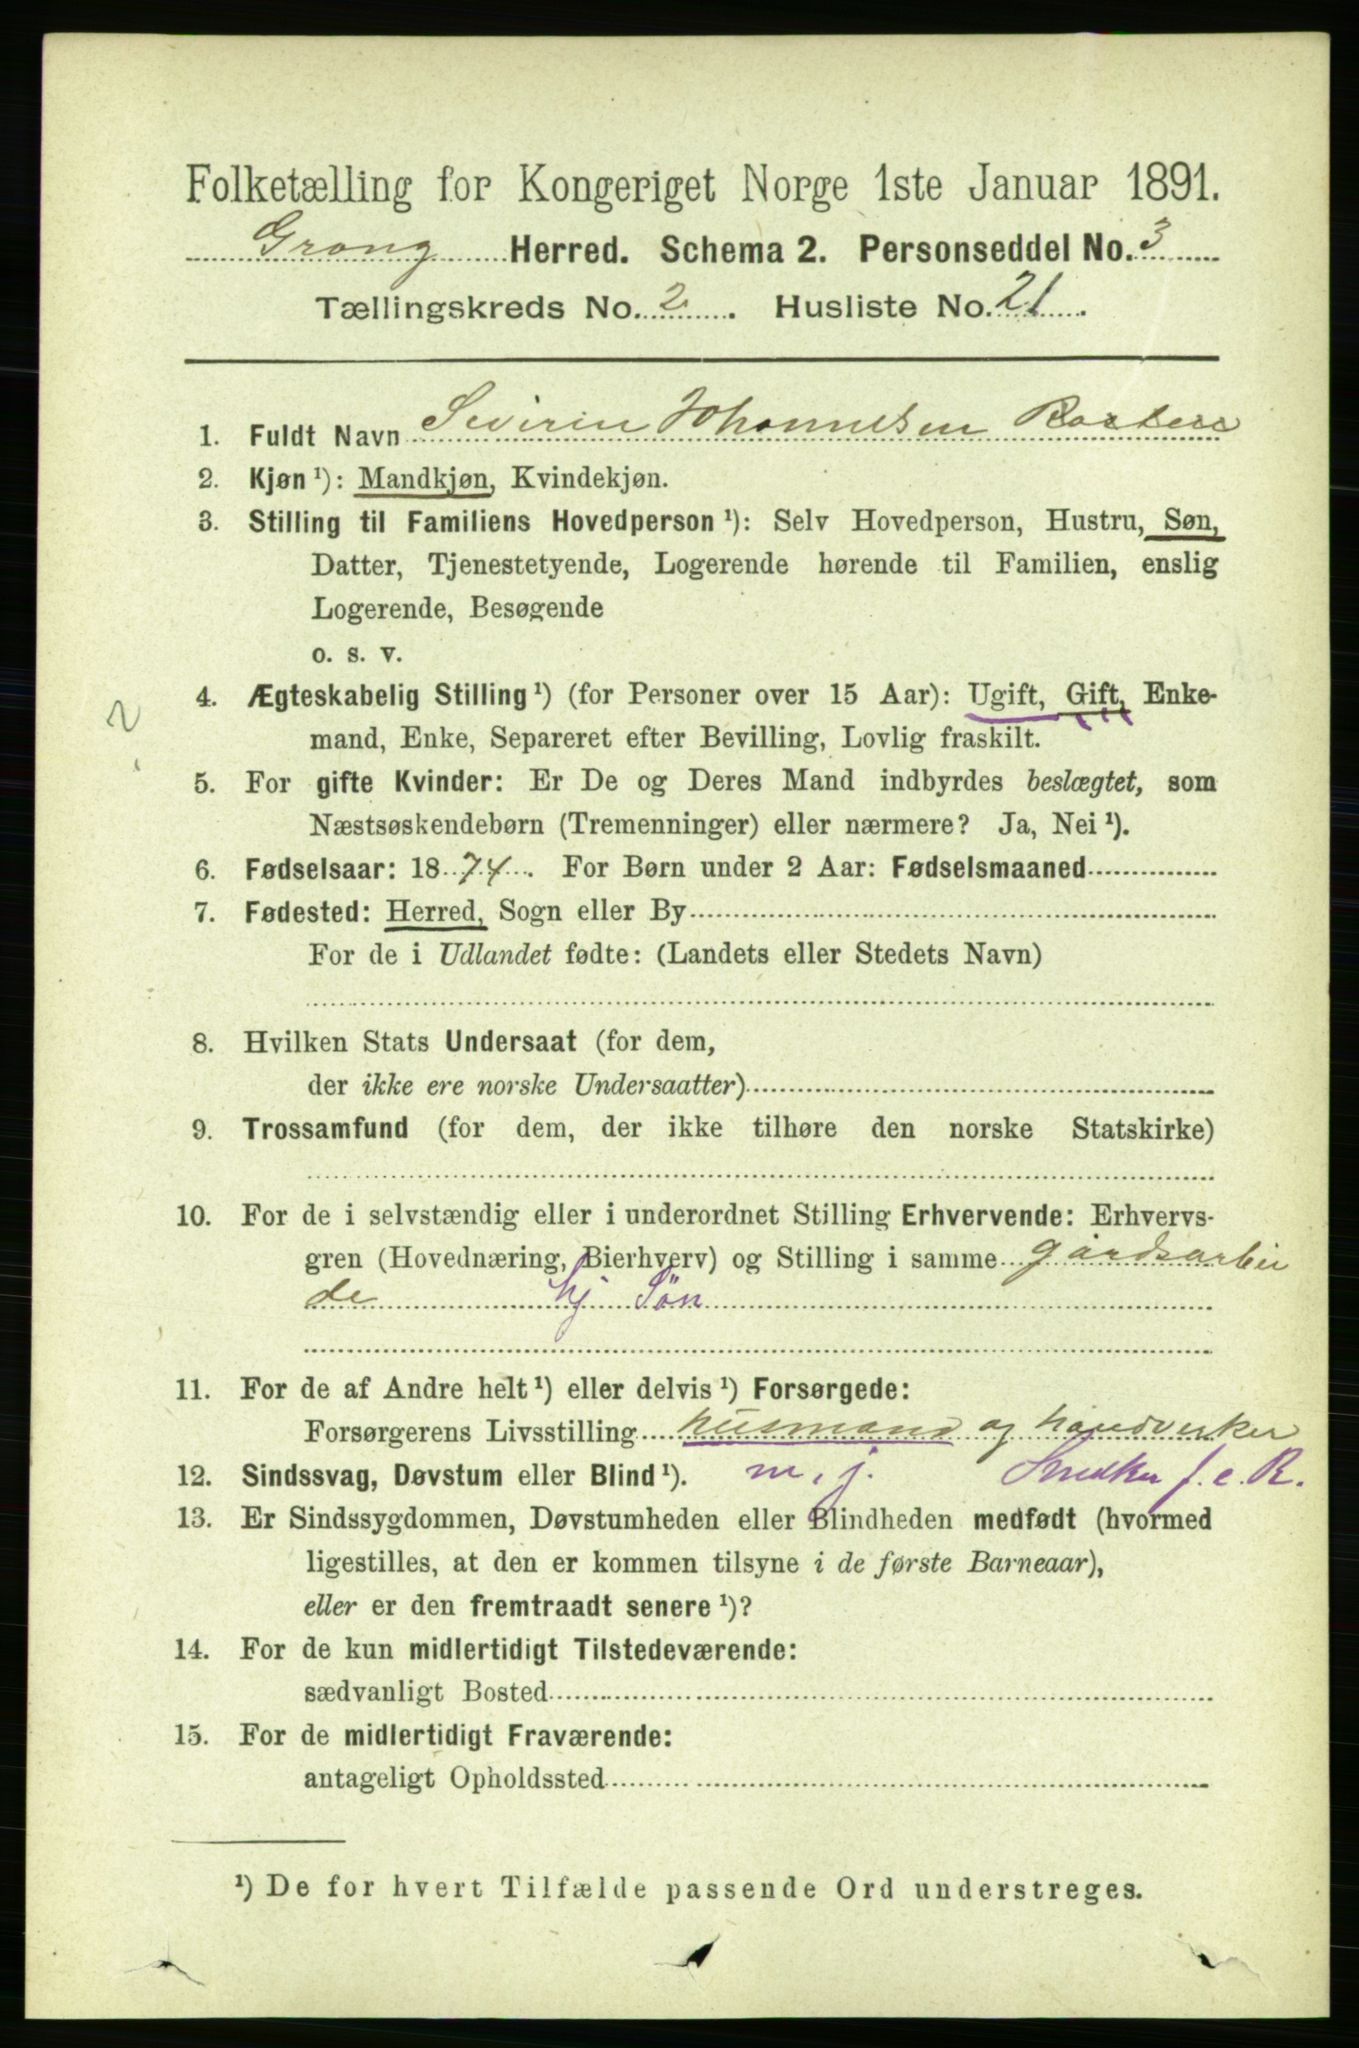 Folketælling for Kongeriget Norge 1ste Januar 1891.
Grong Herred. Schema 2. Personseddel No. 3
Tællingskreds No. 2. Husliste No. 21.
1. Fuldt Navn Sivirin Johannesen
2. Kjøn ¹): Mandkjøn, Kvindekjøn.
3. Stilling til Familiens Hovedperson ¹): Selv Hovedperson, Hustru, Søn,
Datter, Tjenestetyende, Logerende hørende til Familien, enslig
Logerende, Besøgende
o. s. v.
4. Ægteskabelig Stilling ¹) (for Personer over 15 Aar): Ugift, Gift, Enke-
mand, Enke, Separeret efter Bevilling, Lovlig fraskilt.
5. For gifte Kvinder: Er De og Deres Mand indbyrdes beslægtet, som
Næstsøskendebørn (Tremenninger) eller nærmere? Ja, Nei ¹).
6. Fødselsaar: 1874. For Børn under 2 Aar: Fødselsmaaned
7. Fødested: Herred, Sogn eller By
For de i Udlandet fødte: (Landets eller Stedets Navn)
8. Hvilken Stats Undersaat (for dem,
der ikke ere norske Undersaatter)
9. Trossamfund (for dem, der ikke tilhøre den norske Statskirke)
10. For de i selvstændig eller i underordnet Stilling Erhvervende: Erhvervs-
gren (Hovednæring, Bierhverv) og Stilling i samme gårdsarbei
de hj Søn
11. For de af Andre helt ¹) eller delvis ¹) Forsørgede:
Forsørgerens Livsstilling husmand og håndverker
12. Sindssvag, Døvstum eller Blind ¹). m. j. Snedker f. e. R.
13. Er Sindssygdommen, Døvstumheden eller Blindheden medfødt (hvormed
ligestilles, at den er kommen tilsyne i de første Barneaar),
eller er den fremtraadt senere ¹)?
14. For de kun midlertidigt Tilstedeværende:
sædvanligt Bosted
15. For de midlertidigt Fraværende:
antageligt Opholdssted
¹) De for hvert Tilfælde passende Ord understreges.